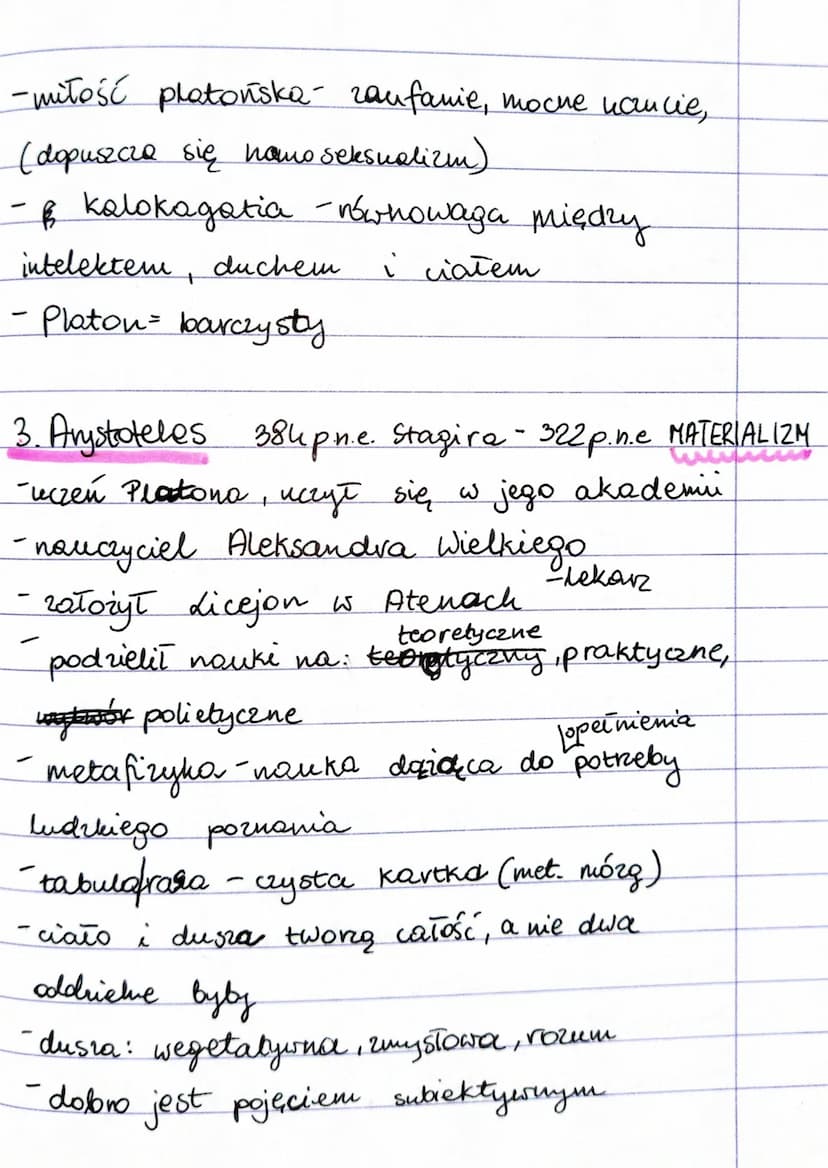 - miłość platońska - zaufanie, mocne uczucie,
(dopuszcza się homoseksualizm)
- kalokagatia - równowaga między
intelektem, duchem i ciałem
- Platon = barczysty
3. Arystoteles 384 p.n.e. Stagira - 322 p.n.e MATERIALIZM
- uczeń Platona, uczył się w jego akademii
- nauczyciel Aleksandra Wielkiego
- lekarz
- założył Licejon w Atenach
teoretyczne
- podzielił nauki na: teoretyczny, praktyczne,
wytwór polietyczne
dopełnienia
- metafizyka - nauka dążąca do potrzeby
ludzkiego poznania
- tabula/rasa - czysta kartka (met. mózg)
- ciało i dusza tworzą całość, a nie dwa
oddzielne byby
- dusza: wegetatywna, zmysłowa, rozum
- dobro jest pojęciem subiektywnym